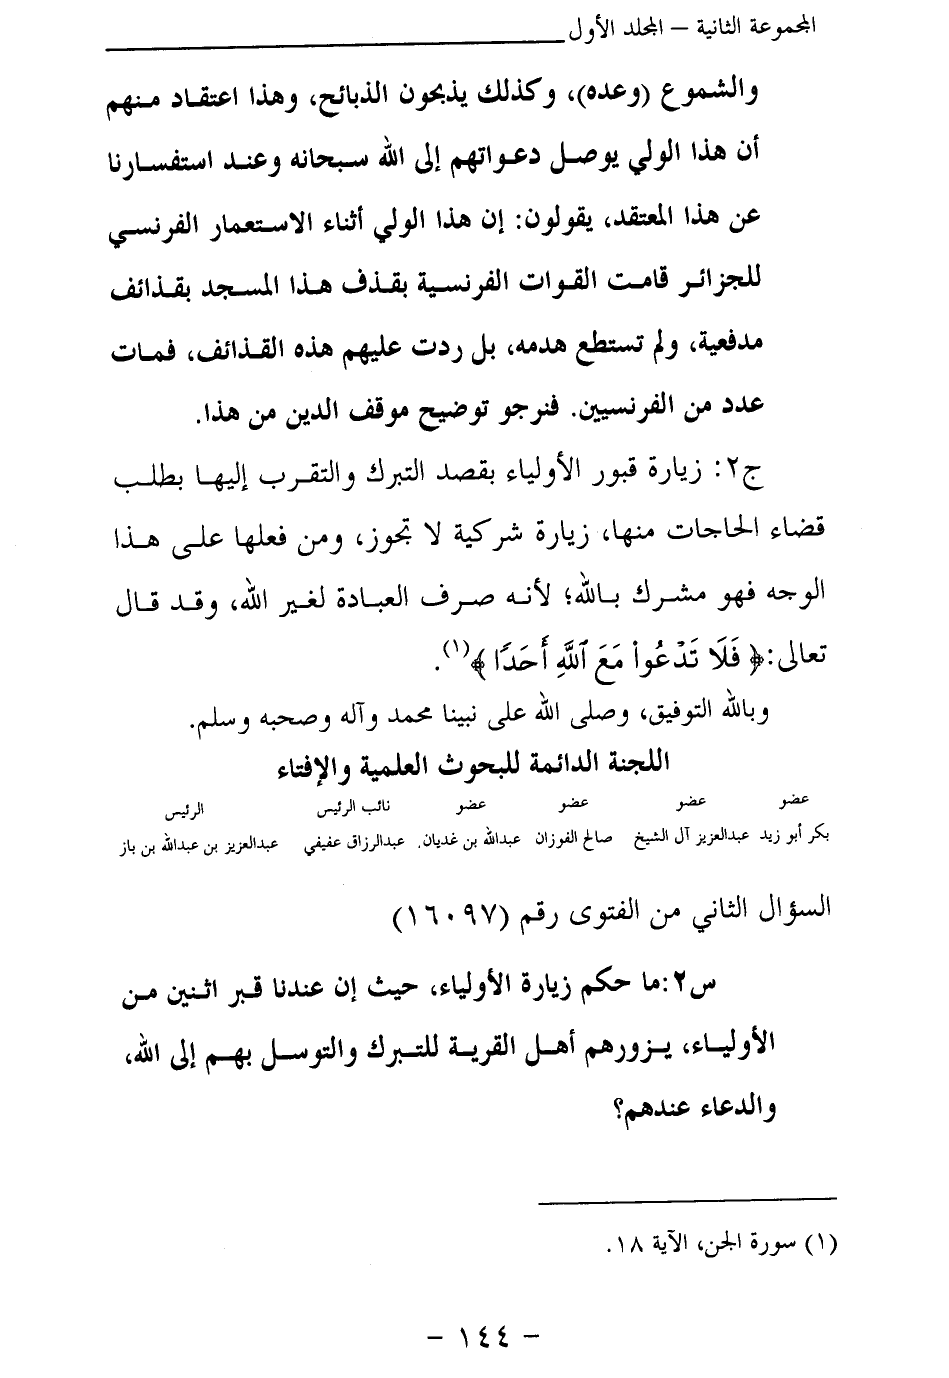 المجموعة الثانية – المجلد الأول
والشموع (وعده)، وكذلك يذبحون الذبائح، وهذا اعتقاد منهم
أن هذا الولي يوصل دعواتهم إلى الله سبحانه وعند استفسارنا
عن هذا المعتقد، يقولون: إن هذا الولي أثناء الاستعمار الفرنسي
للجزائر قامت القوات الفرنسية بقذف هذا المسجد بقذائف
مدفعية، ولم تستطع هدمه، بل ردت عليهم هذه القذائف، فمات
عدد من الفرنسيين. فنرجو توضيح موقف الدين من هذا.
ج٢: زيارة قبور الأولياء بقصد التبرك والتقرب إليها بطلب
قضاء الحاجات منها، زيارة شركية لا تجوز، ومن فعلها على هذا
الوجه فهو مشرك بالله؛ لأنه صرف العبادة لغير الله، وقد قال
تعالى: ﴿ فَلَا تَدْعُواْ مَعَ ٱللَّهِ أَحَدًا ﴾(١).
وبالله التوفيق، وصلى الله على نبينا محمد وآله وصحبه وسلم.
اللجنة الدائمة للبحوث العلمية والإفتاء
عضو عضو عضو عضو نائب الرئيس الرئيس
بكر أبو زيد عبدالعزيز آل الشيخ صالح الفوزان عبدالله بن غديان. عبدالرزاق عفيفي عبدالعزيز بن عبدالله بن باز
السؤال الثاني من الفتوى رقم (١٦٠٩٧)
س٢:ما حكم زيارة الأولياء، حيث إن عندنا قبر اثنين من
الأولياء، يزورهم أهل القرية للتبرك والتوسل بهم إلى الله،
والدعاء عندهم؟
(١) سورة الجن، الآية ١٨.
- ١٤٤ -